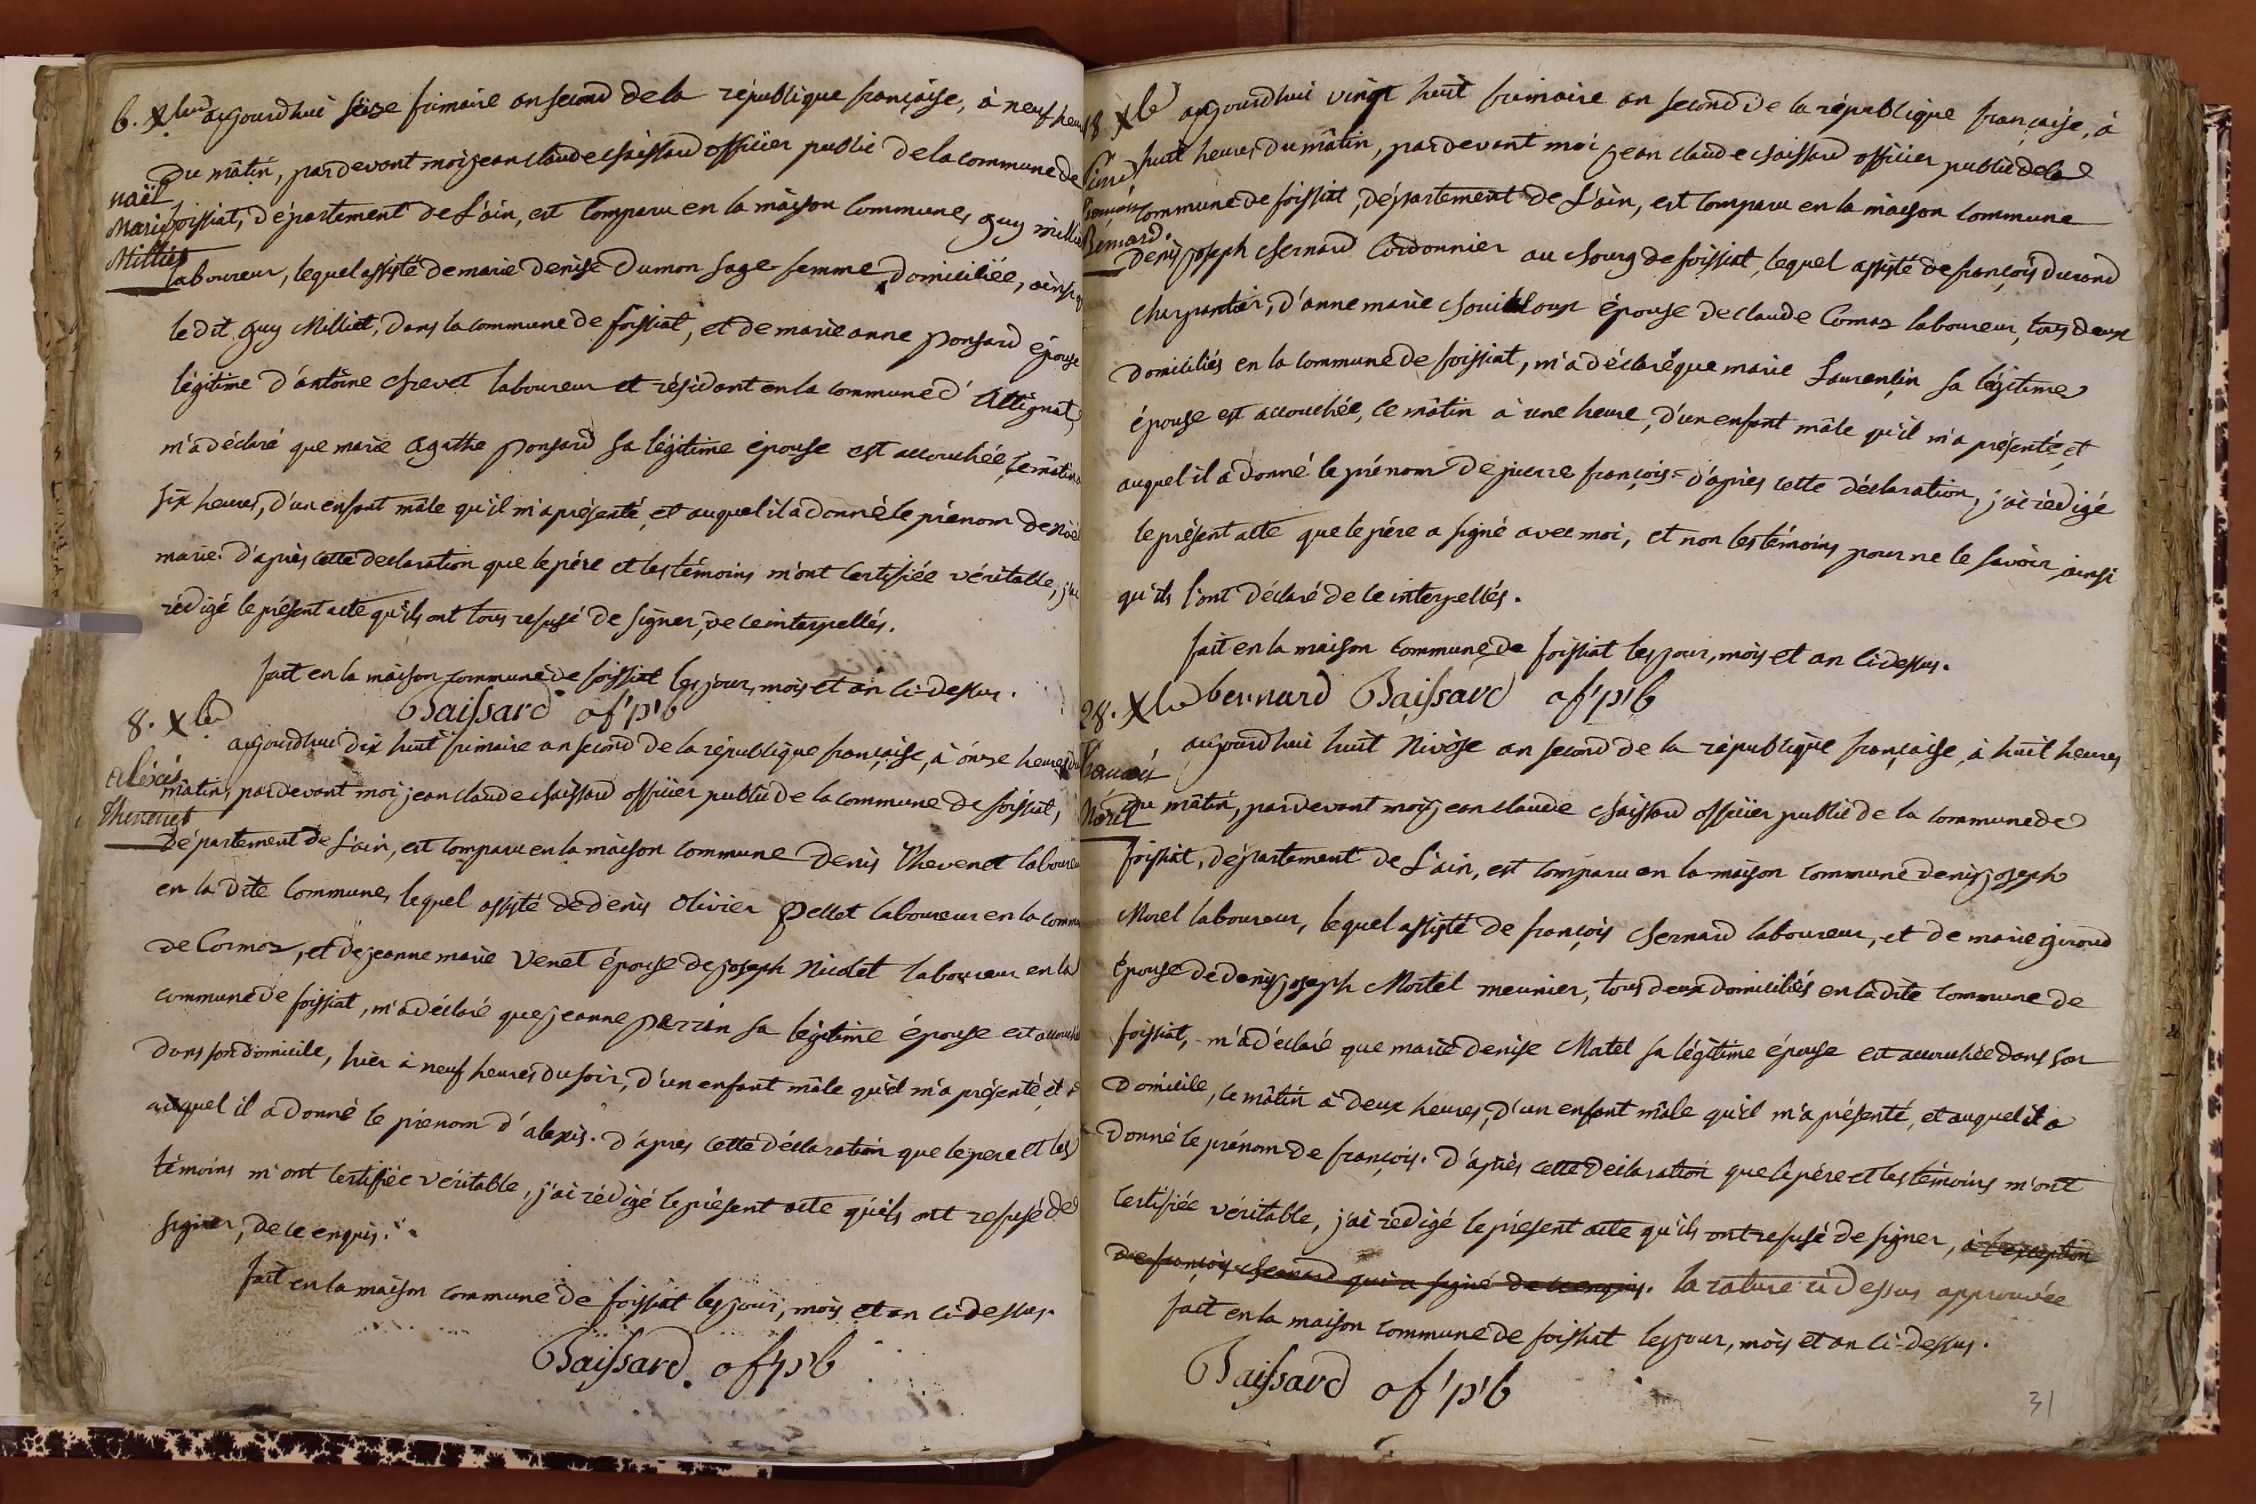 6. Xbre aujourdhui séize frimaire an second de la république française, à neuf heures
du mâtin, pardevant moi jean claude Baissard officier public de la commune de
naël
marie foissiat, département de L'ain, est comparu en la màison commune, guy milliet
Milliet
laboureur, lequel assisté de marie denise Dumon sage femme, domiciliée, ainsi q
le dit guy Milliet, dans la commune de foissiat, et de marie anne Ponsard épouse
légitime d'antoine chevet laboureur et résidant en la commune d'Attignat,
m'a déclaré que marie Agathe ponsard sa légitime épouse est accouchée, ce mâtin à
six heures, d'un enfant mâle qu'il m'a présenté, et auquel il a donné le prénom de Noël
marie. d'après cette declaration que le père et les témoins m'ont certifiée véritable, j'ai
rédigé le présent acte qu'ils ont tous refusé de signer, de ce interpellés.
fait en la màison commune de foissiat les jour, mois et an ci-dessus.
Baissard of'p'b
8. Xbre
aujourdhui dix huit frimaire an second de la république française, à onze heures du
alexis mâtin, pardevant moi jean claude Baissard officier public de la commune de foissiat,
Thevenet
département de L'ain, est comparu en la màison commune denis Thevenet laboureur
en la dite commune, lequel assisté de denis olivier Pellet laboureur en la commune
de Cormoz, et de jeanne marie Venet épouse de joseph Nicolet laboureur en la
commune de foissiat, m'a déclaré que jeanne perrin sa légitime épouse est accouchée
dans son domicile, hièr à neuf heures du soir, d'un enfant mâle qu'il m'a présenté, et
auquel il a donné le prénom d'alexis. d'après cette déclaration que le pere et les
témoins m'ont certifiée véritable, j'ai rédigé le présent acte qu'ils ont refusé de
signer, de ce enquis.
fait en la maison commune de foissiat les jour, mois et an ci-dessus.
Baissard of'p'b
18 Xbre aujourdhui vingt huit frimaire an second de la république française, à
huit heures du mâtin, pardevant moi jean claude Baissard officier public de la
Pierre
françois commune de foissiat, département de L'ain, est comparu en la màison commune
Bernard.
denis joseph Bernard Cordonnier au Bourg de foissiat, lequel assisté de françois durand
charpentier, d'anne marie épouse de claude Comas laboureur, tous deux
domiciliés en la commune de foissiat, m'a déclaré que marie Laurentin sa légitime
épouse est accouchée, ce mâtin à une heure, d'un enfant mâle qu'il m'a présenté, et
auquel il a donné le prénom de pierre françois = d'après cette déclaration, j'ai rédigé
le présent acte que le père a signé avec moi, et non les témoins pour ne le savoir, ainsi
qu'ils l'ont déclaré de ce interpellés.
fait en la maison commune de foissiat les jour, mois et an ci dessus.
bernard Baissard of'p'b
28. Xbre
aujourdhui huit Nivôse an second de la république française, à huit heures
françois
Morel du mâtin, pardevant moi jean claude Baissard officier public de la commune de
foissiat, département de L'ain, est comparu en la maison commune denis joseph
Morel laboureur, lequel assisté de françois Bernard laboureur, et de marie giroud
épouse de denis joseph Mortel meunier, tous deux domiciliés en la dite commune de
foissiat, m'a déclaré que marie denise Matel sa légitime épouse est accouchée dans son
domicile, ce mâtin à deux heures, d'un enfant mâle qu'il m'a présenté, et auquel il a
donné le prénom de françois. d'après cette déclaration que le père et les témoins m'ont
certifiée véritable, j'ai rédigé le présent acte qu'ils ont refusé de signer, à l'exception
de françois Bernard qui a signé de ce enquis. la rature ci dessus approuvée
fait en la maison commune de foissiat les jour, mois et an ci-dessus.
Baissard of'p'b
31